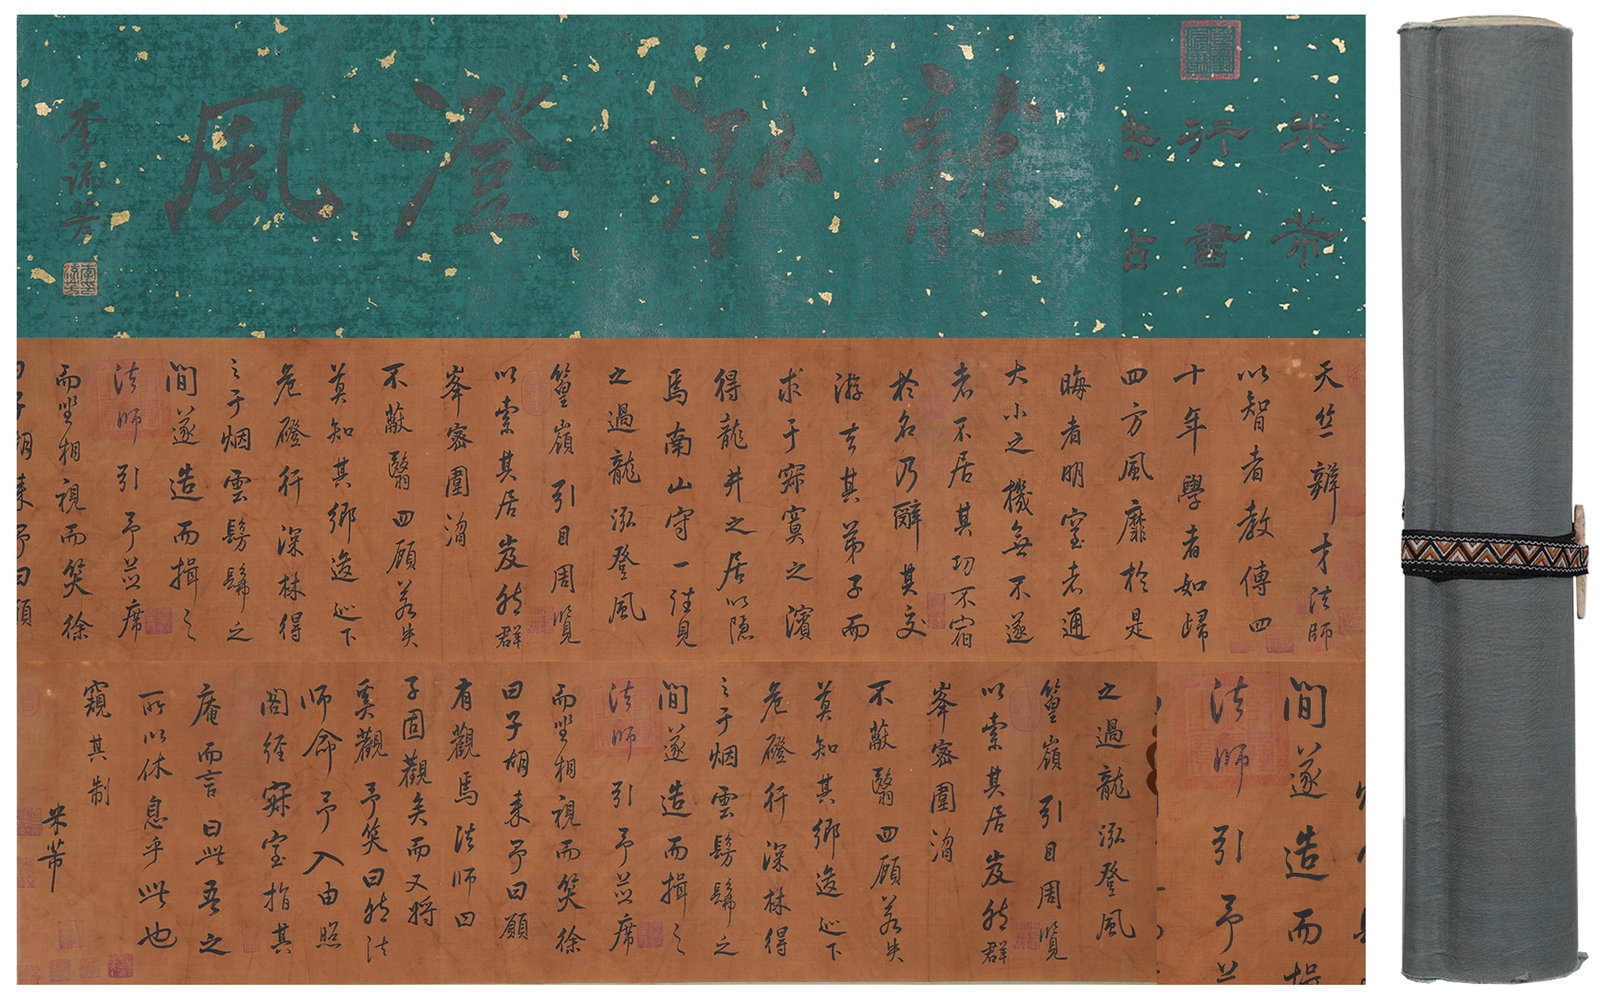 米芾
行書
龍
泓
澄
風
李流芳
天竺辯才法師
以智者教傳四
十年學者如歸
四方風靡於是
晦者明窒者通
大小之機無不遂
者不居其功不宿
於名乃辭其交
游去其弟子而
求于寂寞之濱
得龍井之居以隱
焉南山守一往見
之過龍泓登風
篁嶺引目周覽
以索其居岌然群
峯密圍滃
不蔽翳四顧若失
莫知其鄉逡巡下
危磴行深林得
之于烟雲髣髴之
間遂造而揖之
法師引予並席
而坐相視而笑徐
曰子胡來予曰願
之過龍泓登風
篁嶺引目周覽
以索其居岌然群
峯密圍滃
不蔽翳四顧若失
莫知其鄉逡巡下
危磴行深林得
之于烟雲髣髴之
間遂造而揖之
法師引予並席
而坐相視而笑徐
曰子胡來予曰願
有觀焉法師曰
子固觀矣而又將
奚觀予笑曰然法
師命予入由照
閣經寂室指其
庵而言曰此吾之
所以休息乎此也
窺其制
米芾
間遂造而揖
法師引予並